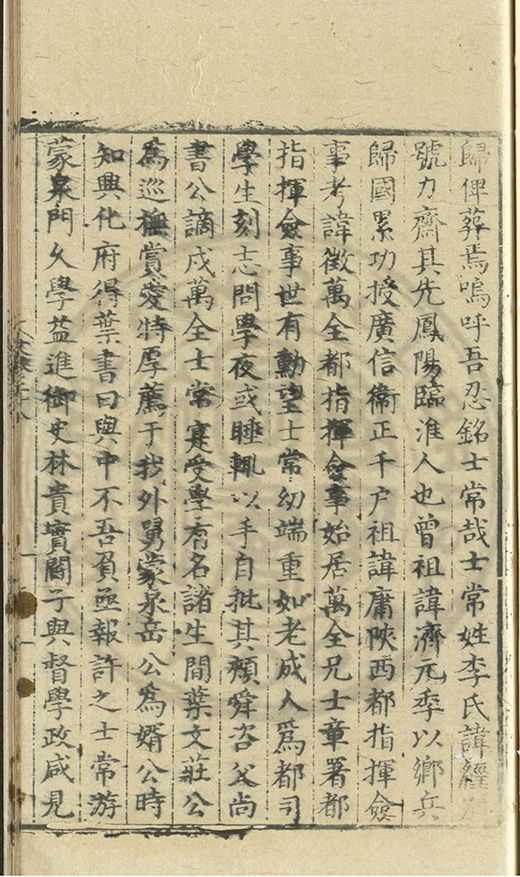 歸俾葬焉嗚呼吾忍銘士常哉士常姓李氏諱經
號力齋其先鳳陽臨淮人也曾祖諱濟元季以鄉兵
歸國累功授廣信衛正千户祖諱庸陝西都指揮僉
事考諱徵萬全都指揮僉事始居萬全兄士章署都
指揮僉事世有勳望士常幼端重如老成人爲都司
學生刻志問學夜或睡輒以手自批其頰舜咨父尚
書公謫戍萬全士常寔受學有名諸生間葉文莊公
爲巡撫賞愛特厚薦于我外舅蒙泉岳公爲婿公時
知興化府得葉書曰與中不吾負亟報許之士常游
蒙泉門久學益進御史林貴實閻子與督學政咸見